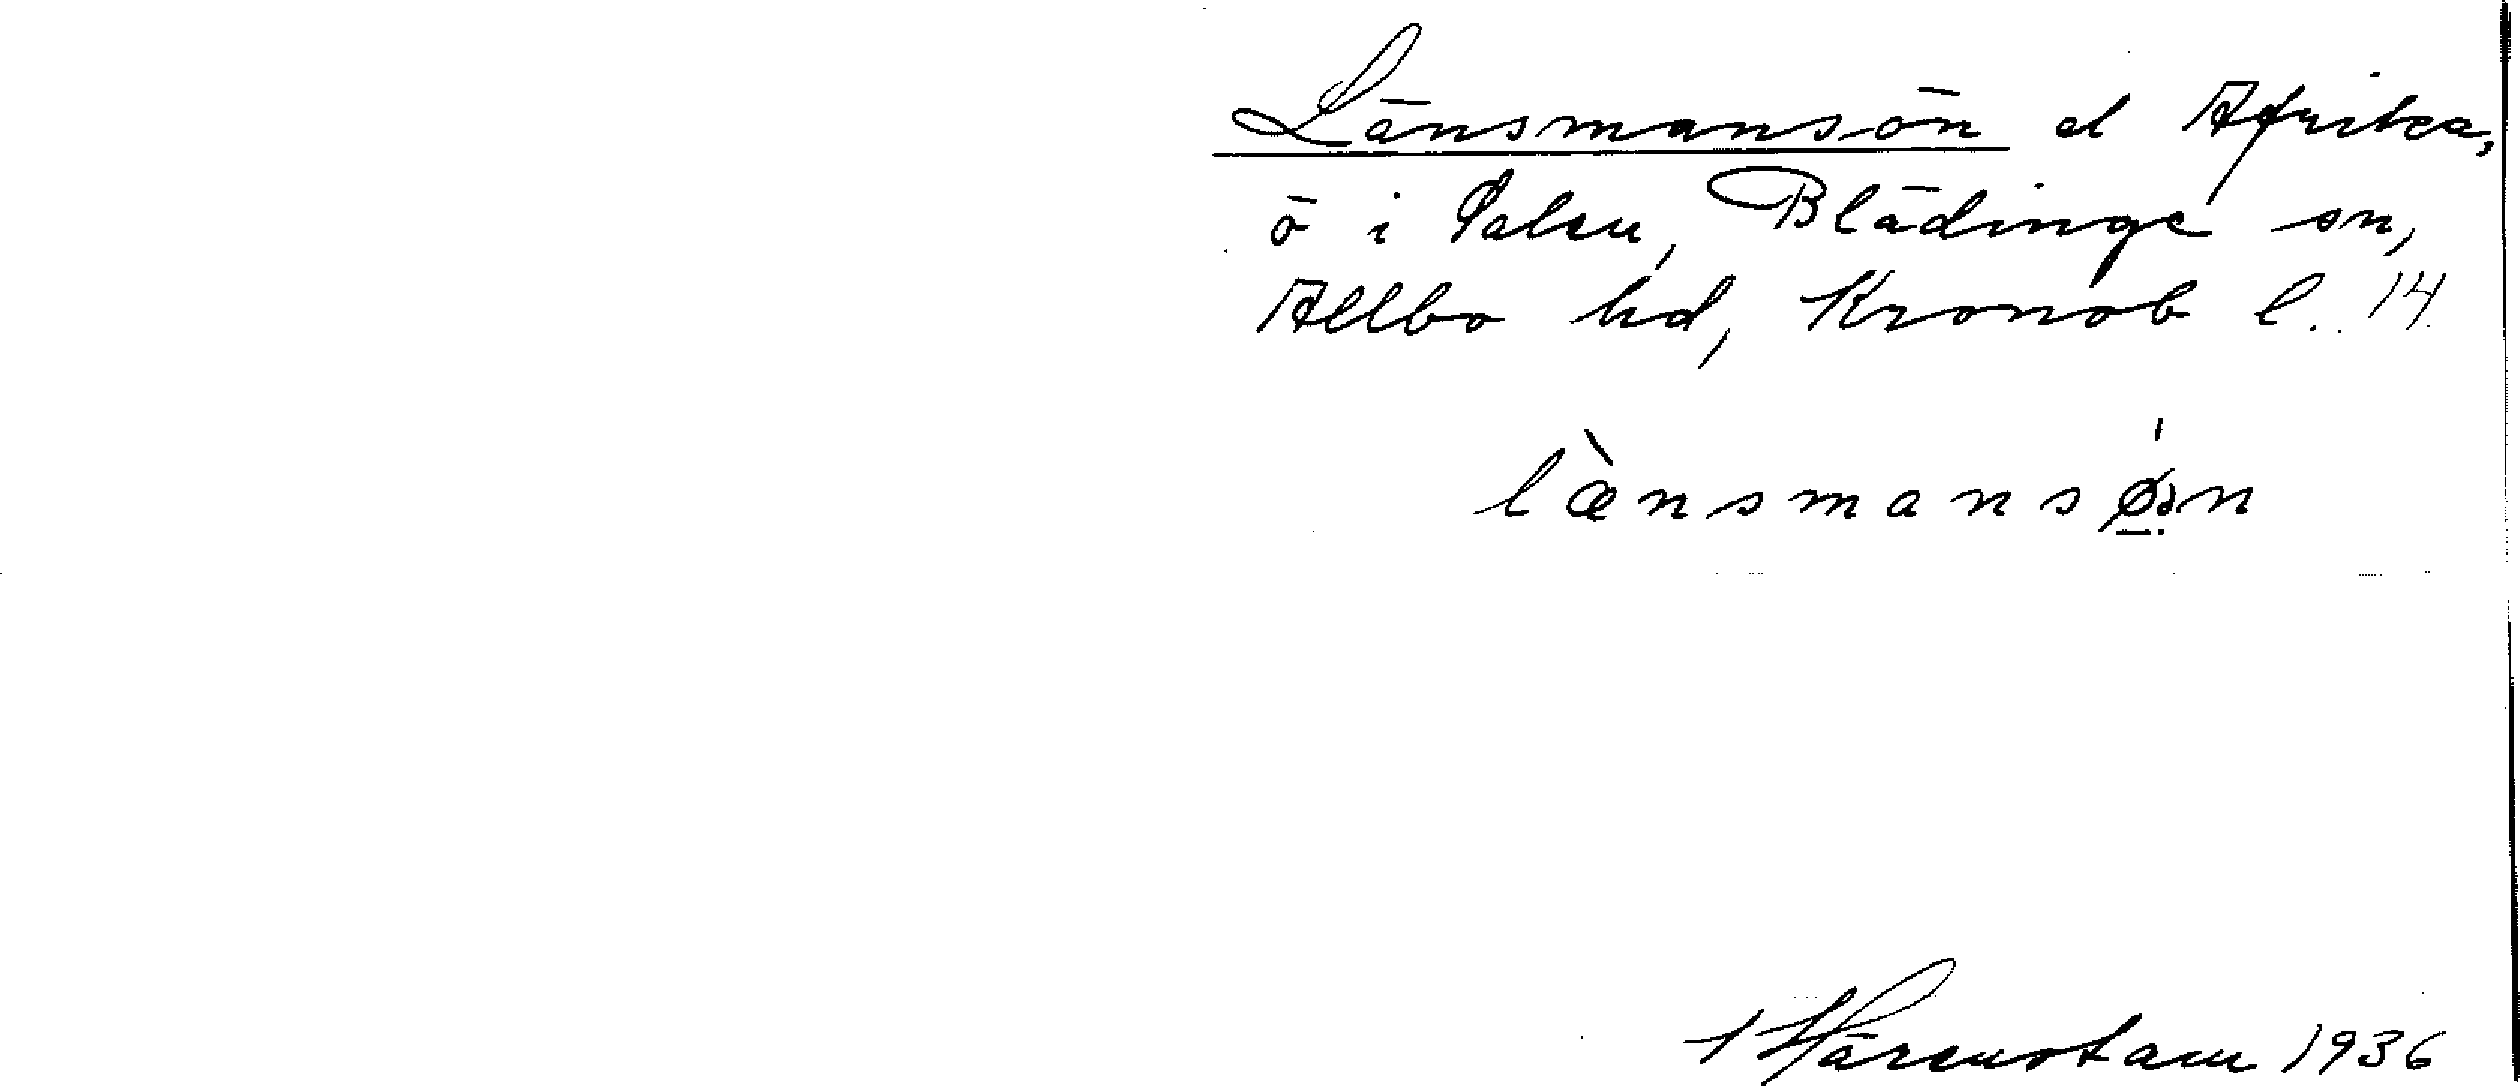 Länsmansön el Afrika,
ö i Salen, Blädinge sn,
Allbo hd, Kronob l. 14
lænsmansøn
Härenstam 1936